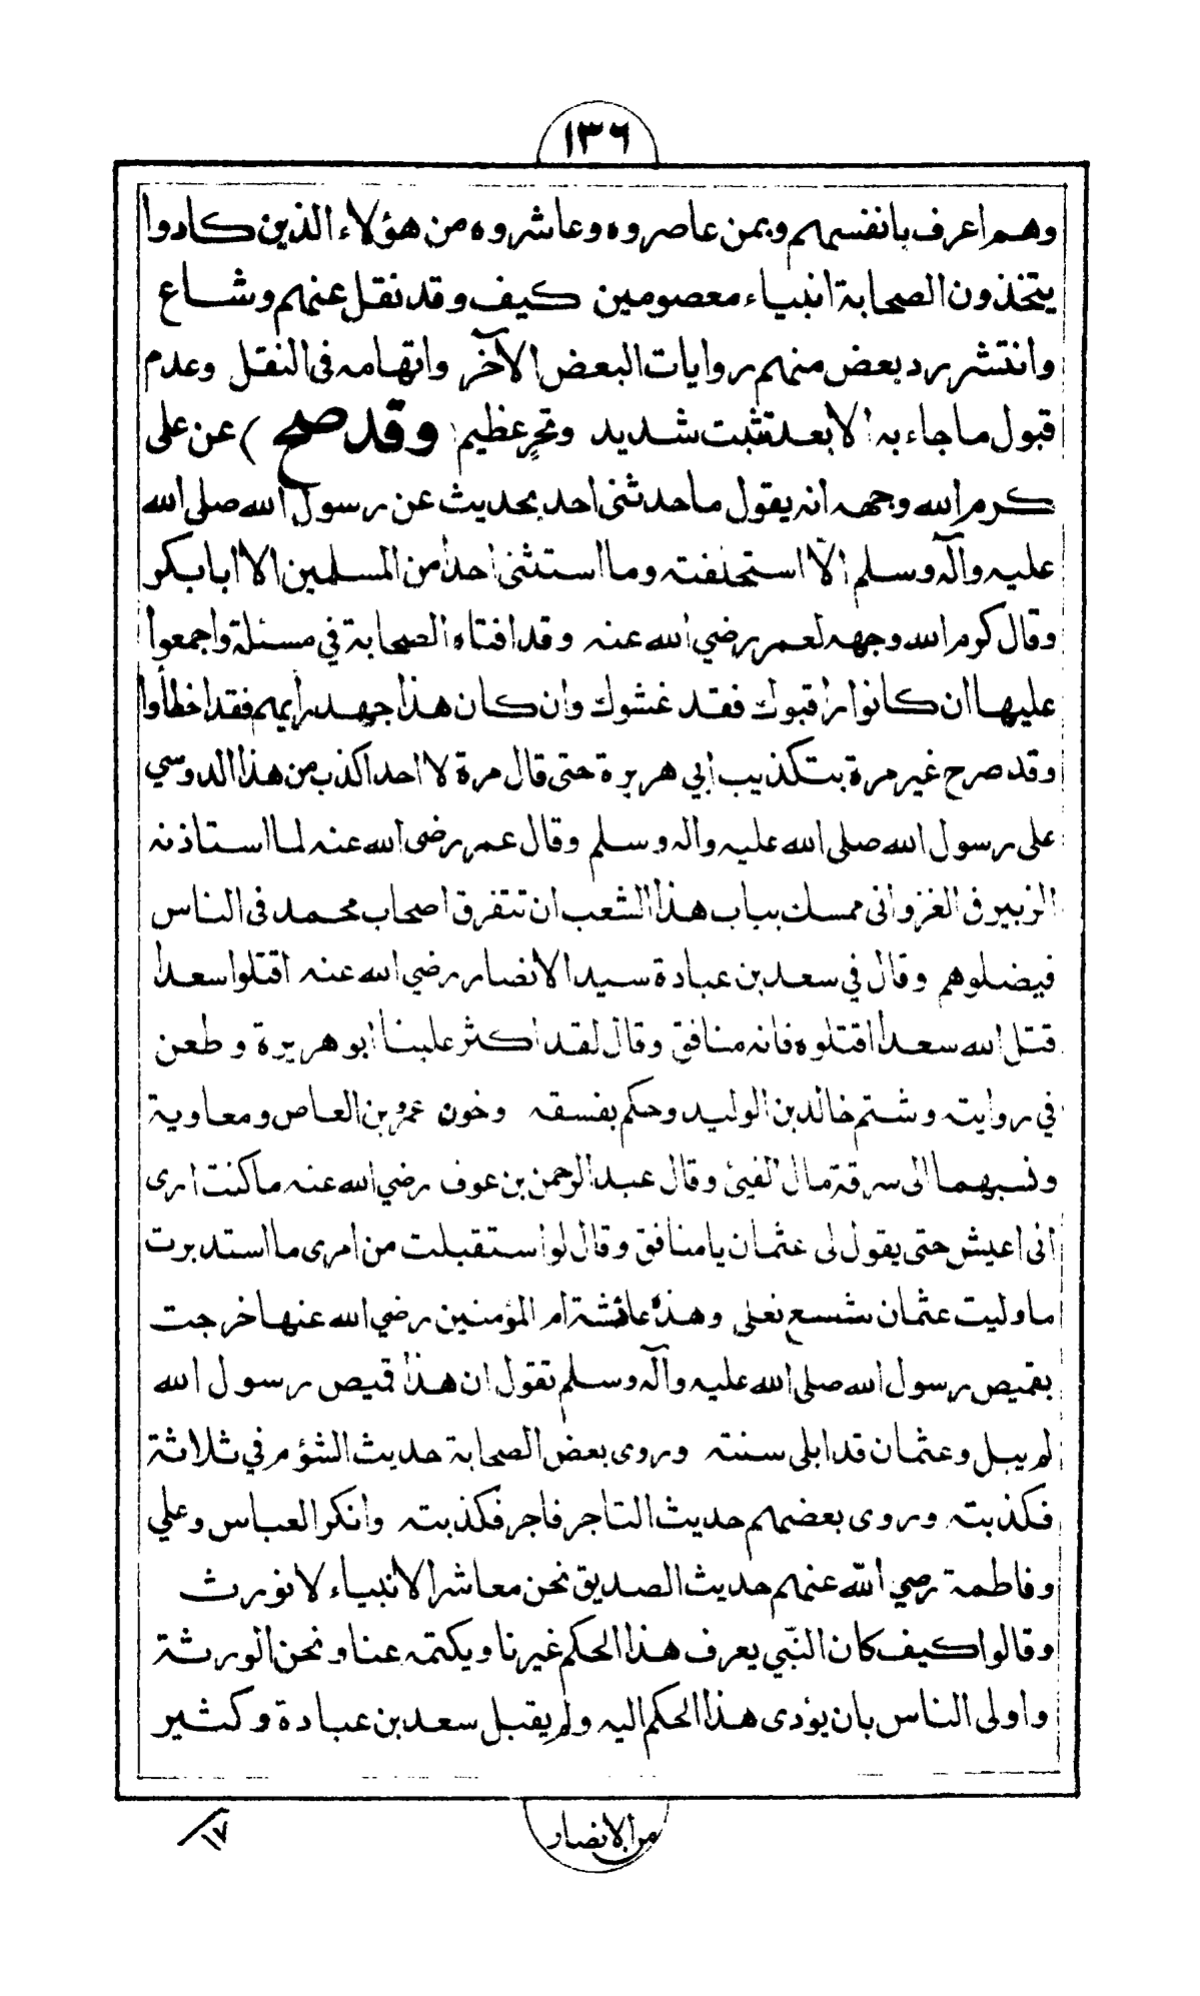 ١٣٦
وهم اعرف بانفسهم وبمن عاصروه وعاشروه من هؤلاء الذين كادوا
يتخذون الصحابة انبياء معصومين كيف وقد نقل عنهم وشاع
وانتشر رد بعض منهم روايات البعض الآخر واتهامه فى النقل وعدم
قبول ما جاء به الا بعد تثبت شديد وتحرٍ عظيم (وقد صح) عن على
كرم الله وجهه انه يقول ما حدثنى احد بحديث عن رسول الله صلى الله
عليه وآله وسلم الّا استحلفته وما استثنى احداً من المسلمين الا ابا بكر
وقال كرم الله وجهه لعمر رضي الله عنه وقد افتاه الصحابة في مسئلة واجمعوا
عليها ان كانوا راقبوك فقد غشوك وان كان هذا جهد رأيهم فقد اخطأوا
وقد صرح غير مرة بتكذيب ابي هريرة حتى قال مرة لا احد اكذب من هذا الدوسي
على رسول الله صلى الله عليه واله وسلم وقال عمر رضى الله عنه لما استاذنه
الزبير فى الغزو انى ممسك بباب هذا الشعب ان تتفرق اصحاب محمد فى الناس
فيضلوهم وقال في سعد بن عبادة سيد الانصار رضي الله عنه اقتلوا سعداً
قتل الله سعداً اقتلوه فانه منافق وقال لقد اكثر علينا ابو هريرة وطعن
في روايته وشتم خالد بن الوليد وحكم بفسقه وخون عمرو بن العاص ومعاوية
ونسبهما الى سرقة مال الفيئ وقال عبد الرحمن بن عوف رضي الله عنه ما كنت ارى
انى اعيش حتى يقول لى عثمان يا منافق وقال لو استقبلت من امرى ما استدبرت
ما وليت عثمان شسع نعلى وهذه عائشة ام المؤمنين رضي الله عنها خرجت
بقميص رسول الله صلى الله عليه وآله وسلم تقول ان هذا قميص رسول الله
لم يبل وعثمان قد ابلى سنته وروى بعض الصحابة حديث الشؤم في ثلاثة
فكذبته وروى بعضهم حديث التاجر فاجر فكذبته وانكر العباس وعلي
وفاطمة رضي الله عنهم حديث الصديق نحن معاشر الانبياء لا نورث
وقالوا كيف كان النّبي يعرف هذا الحكم غيرنا ويكتمه عنا ونحن الورثة
واولى الناس بان يؤدى هذا الحكم اليه ولم يقبل سعد بن عبادة وكثير
من الانصار
١٧